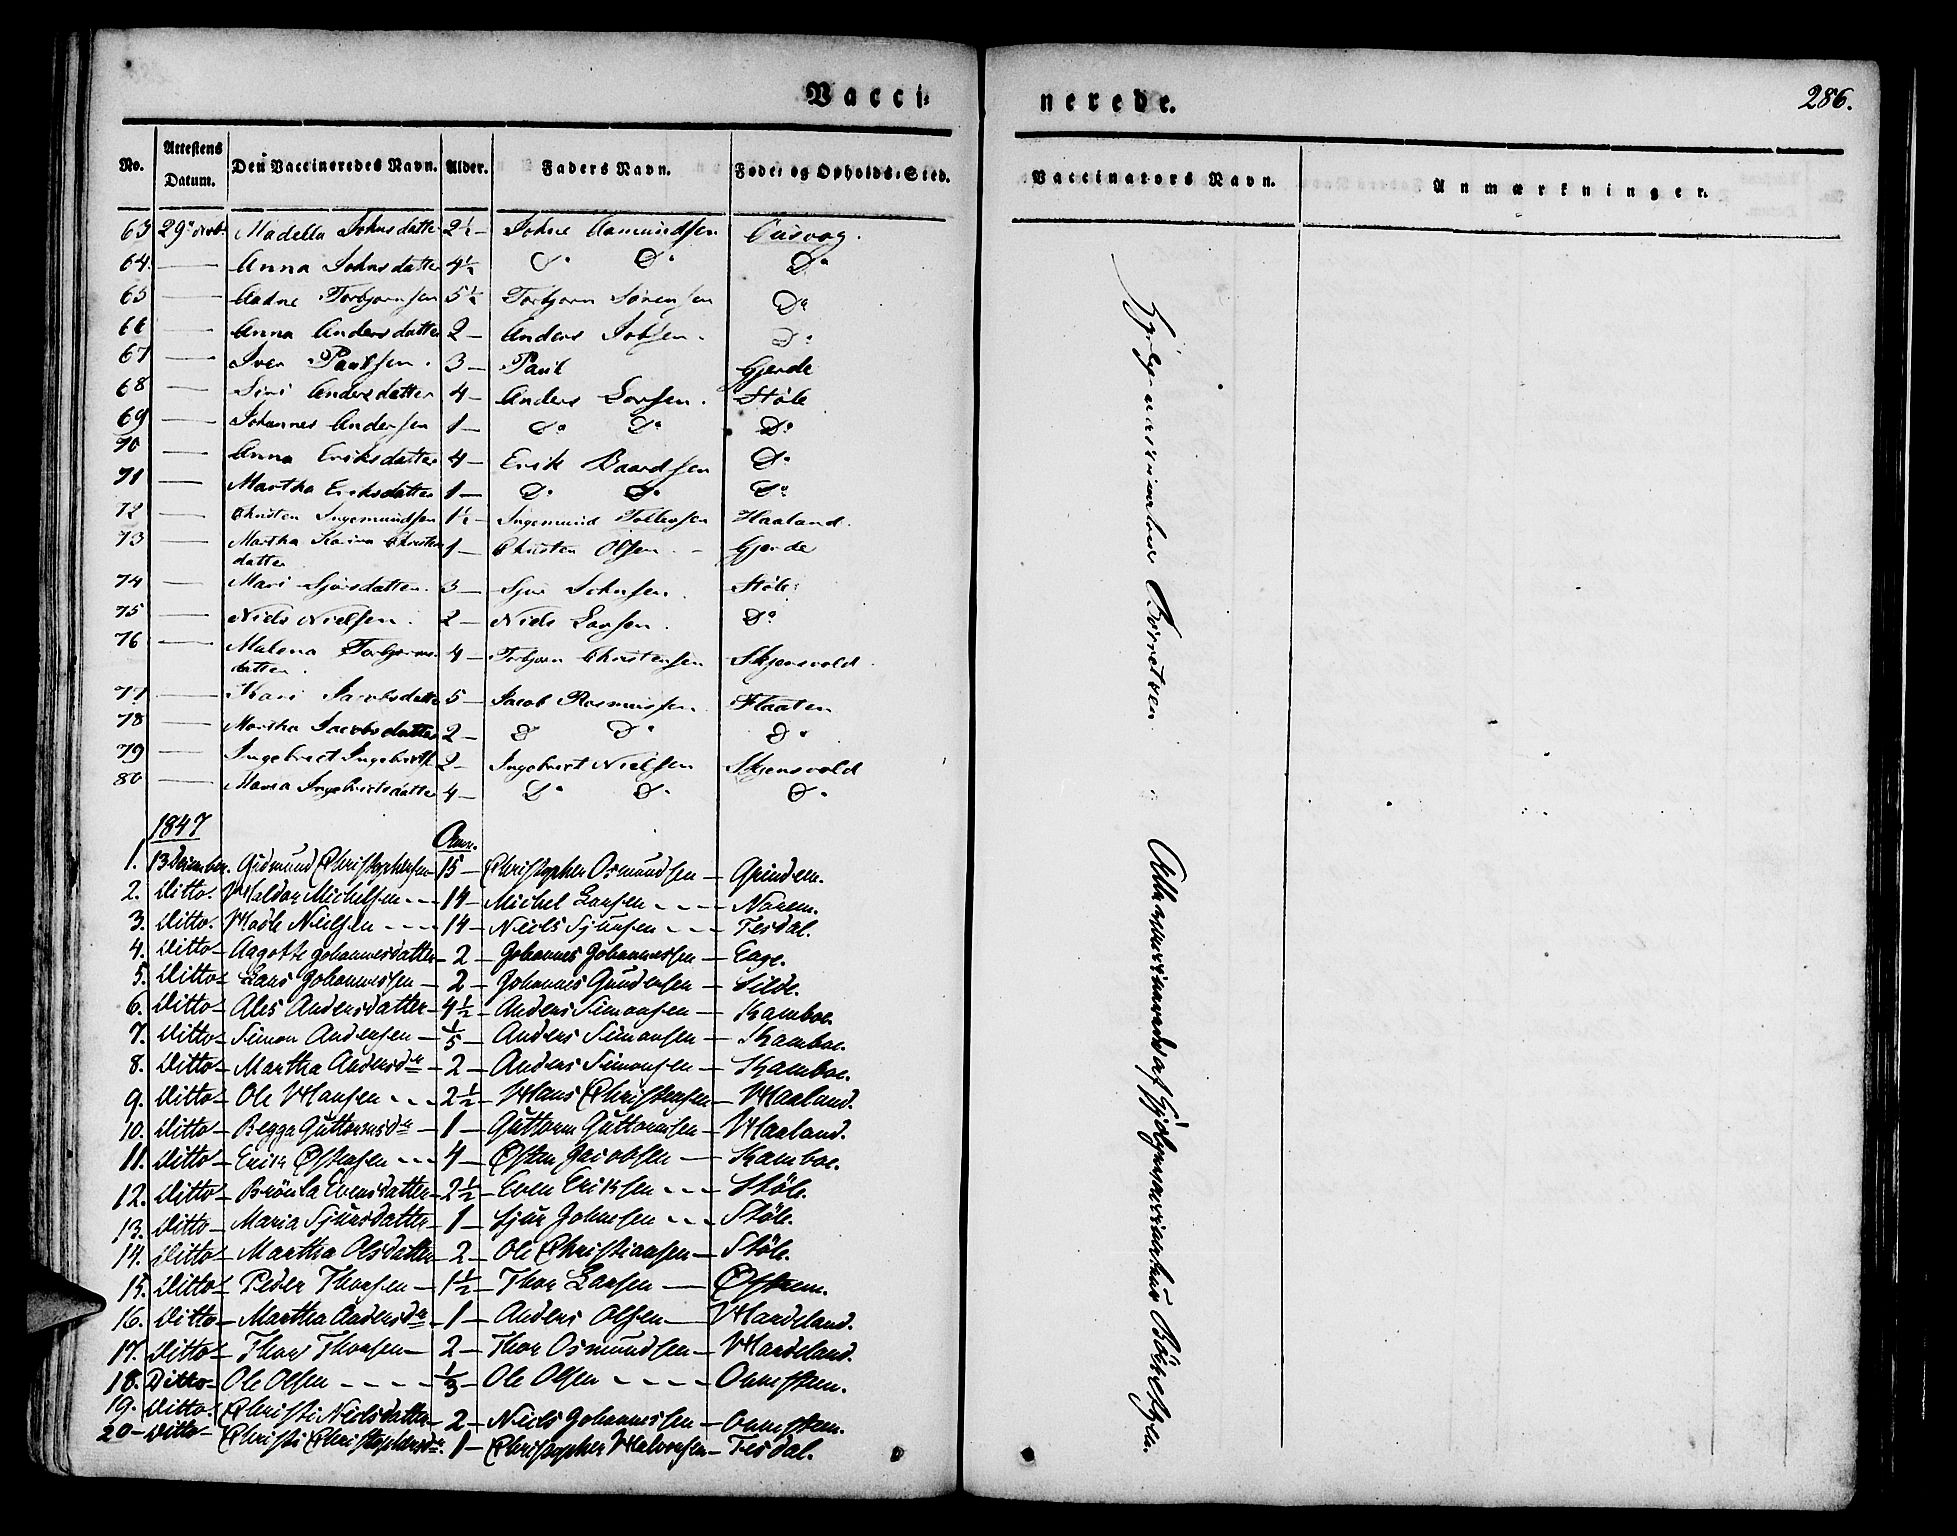 Vacci-
nerede.
286.
No. Attestens Datum. Den Vaccineredes Navn. Alder. Faders Navn. Føde- og Opholds-Sted.
Vaccinators Navn. Anmærkninger.
63 29 Madella Johnsdatter 2½ — Johne Aamundsen
64. — Anna Johnsdatter 4½ Do Do Do
65 — Aadne Torbjornsen 5½ Torbjorn Sørensen Do
66 — Anna Andersdatter 2 — Anders Do
67 — Iver Paulsen. 3 — Paul Gjerde
68 — Siri Andersdatter 4 — Anders Larsen. Støle
69 — Johannes Andersen 1 — Do Do Do
70 — Anna Eriksdatter 4 — Erik Baardsen Do
71 — Martha Eriksdatter 1 — Do Do Do
72 — Christen Ingemundsen 1½ — Ingemund Tollevsen Haaland.
73 — Martha Karina Christen
datter 1 — Christen Olsen. — Gjerde
74 — Mari Sjursdatter. 3 — Sjur Johnsen. Støle
75 — Niels Nielsen. 2 — Niels Larsen. Do
76 — Malena Torbjorns-
datter. 4 — Torbjorn Christensen Skjensvold.
77 — Kari Jacobsdatter 5 — Jacob Rasmussen. Flaaten
78 — Martha Jacobsdatter 2 — Do Do Do
79 — Ingebrect 2 — Ingebrect Nielsen Skjensvold
80 — Maria Ingebrectsdatter 4 — Do Do Do
1847 Aar.
1. 13 December. Gudmund Christophersen — 15 — Christopher Osmundsen — Grindem.
2. Ditto. Haldor Michelsen — — 14 — Michel Larsen — — — Næsem.
3. Ditto. Nielsen — — — 14 — Niels Sjursen — — — Tesdal.
4. Ditto — Aagotte Johannesdatter — 2 — Johannes Johannessen — Eage.
5. Ditto — Lars Johannessen — 2 — Johannes Gundersen — Silde.
6. Ditto — Ales Andersdatter — 4½ — Anders Simonsen — Kamboe.
7. Ditto — Simon Andersen — 1/5 — Anders Simonsen — Kamboe.
8. Ditto — Martha Andersdr — 2 — Anders Simonsen — Kamboe.
9. Ditto — Ole Hansen — — 2½ — Hans Christensen — Haaland.
10. Ditto — Begga Guttormsdr — 1 — Guttorm Guttormsen — Haaland.
11. Ditto — Erik Østensen — — 4 — Østen Jacobsen — Kamboe.
12. Ditto — Evensdatter — 2½ — Even Eriksen — — — Støle.
13. Ditto — Maria Sjursdatter — 1 — Sjur Johnsen — — — Støle.
14. Ditto — Martha Olsdatter — 2 — Ole Christiansen — Støle.
15. Ditto — Peder Thorsen — 1½ — Thor Larsen — Østrem.
16. Ditto — Martha Andersdr — 1 — Anders Olsen — Handeland.
17. Ditto — Thor Thorsen — 2 — Thor Osmundsen — Handeland.
18. Ditto — Ole Olsen — — — — 1/3 — Ole Olsen — — — —
19. Ditto. Christi Nielsdatter — 2 — Niels Johannessen —
20 — Ditto — Christi Christophersdr. 1 — Christopher Halvorsen — Tesdal.